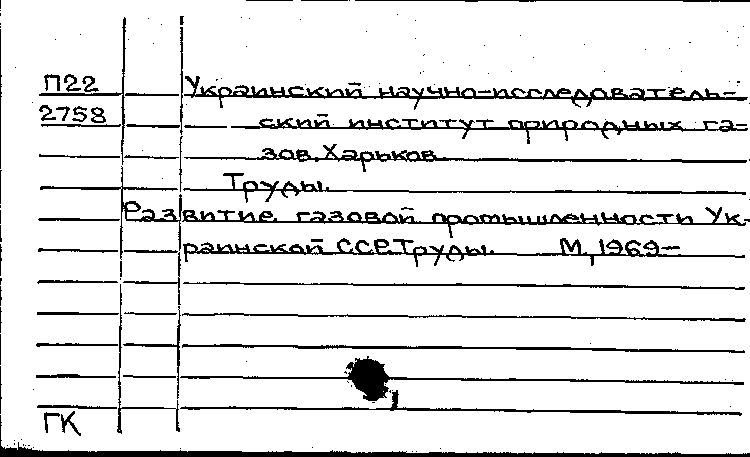 П22 Украинский научно-исследователь-
2758 ский институт природных га-
зов, Харьков.
Труды.
Развитие газовой промышленности Ук-
раинской ССР. Труды. М., 1969—
ГК